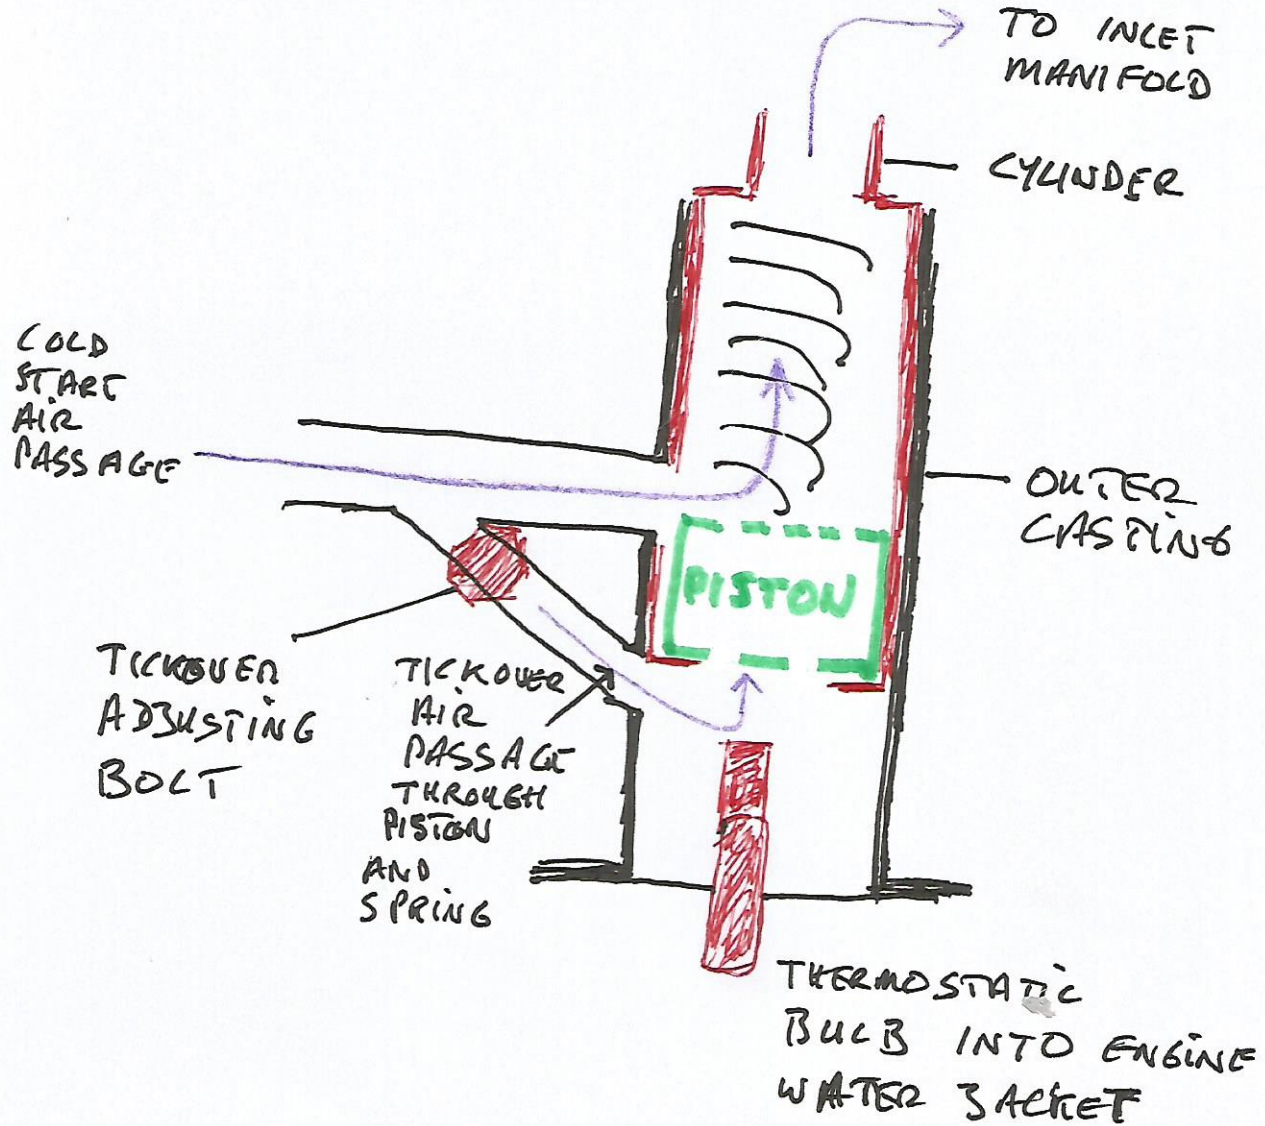 TO INLET
MANIFOLD
CYLINDER
COLD
START
AIR
PASSAGE
OUTER
CASTING
PISTON
TICKOVER
ADJUSTING
BOLT
TICKOVER
AIR
PASSAGE
THROUGH
PISTON
AND
SPRING
THERMOSTATIC
BULB INTO ENGINE
WATER JACKET